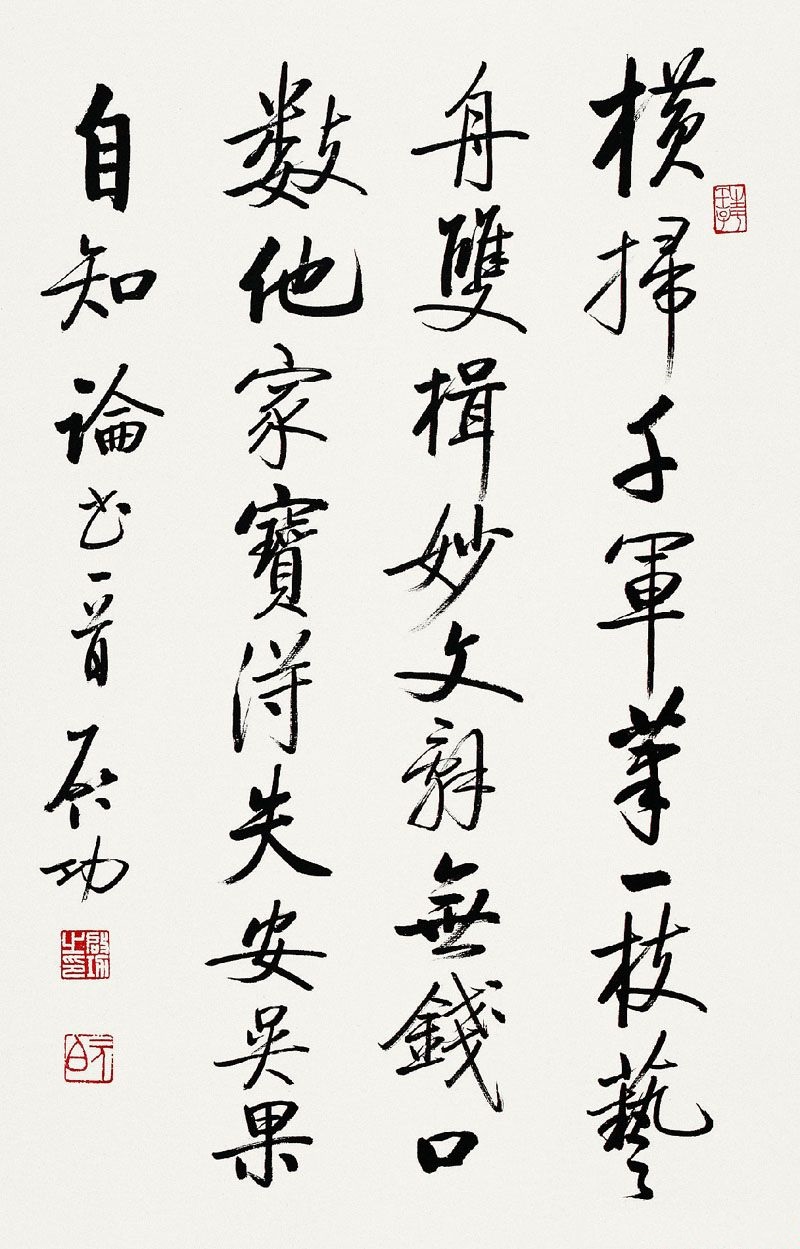 橫掃千軍筆一枝藝
舟雙楫妙文辭無錢口
數他家寶得失安吳果
自知論书一首启功
啟功之印
元白